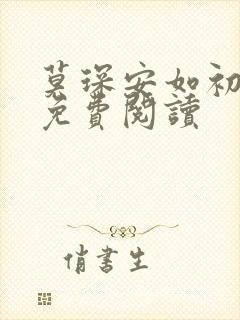 莫琛安如初
免費閱讀
俏書生